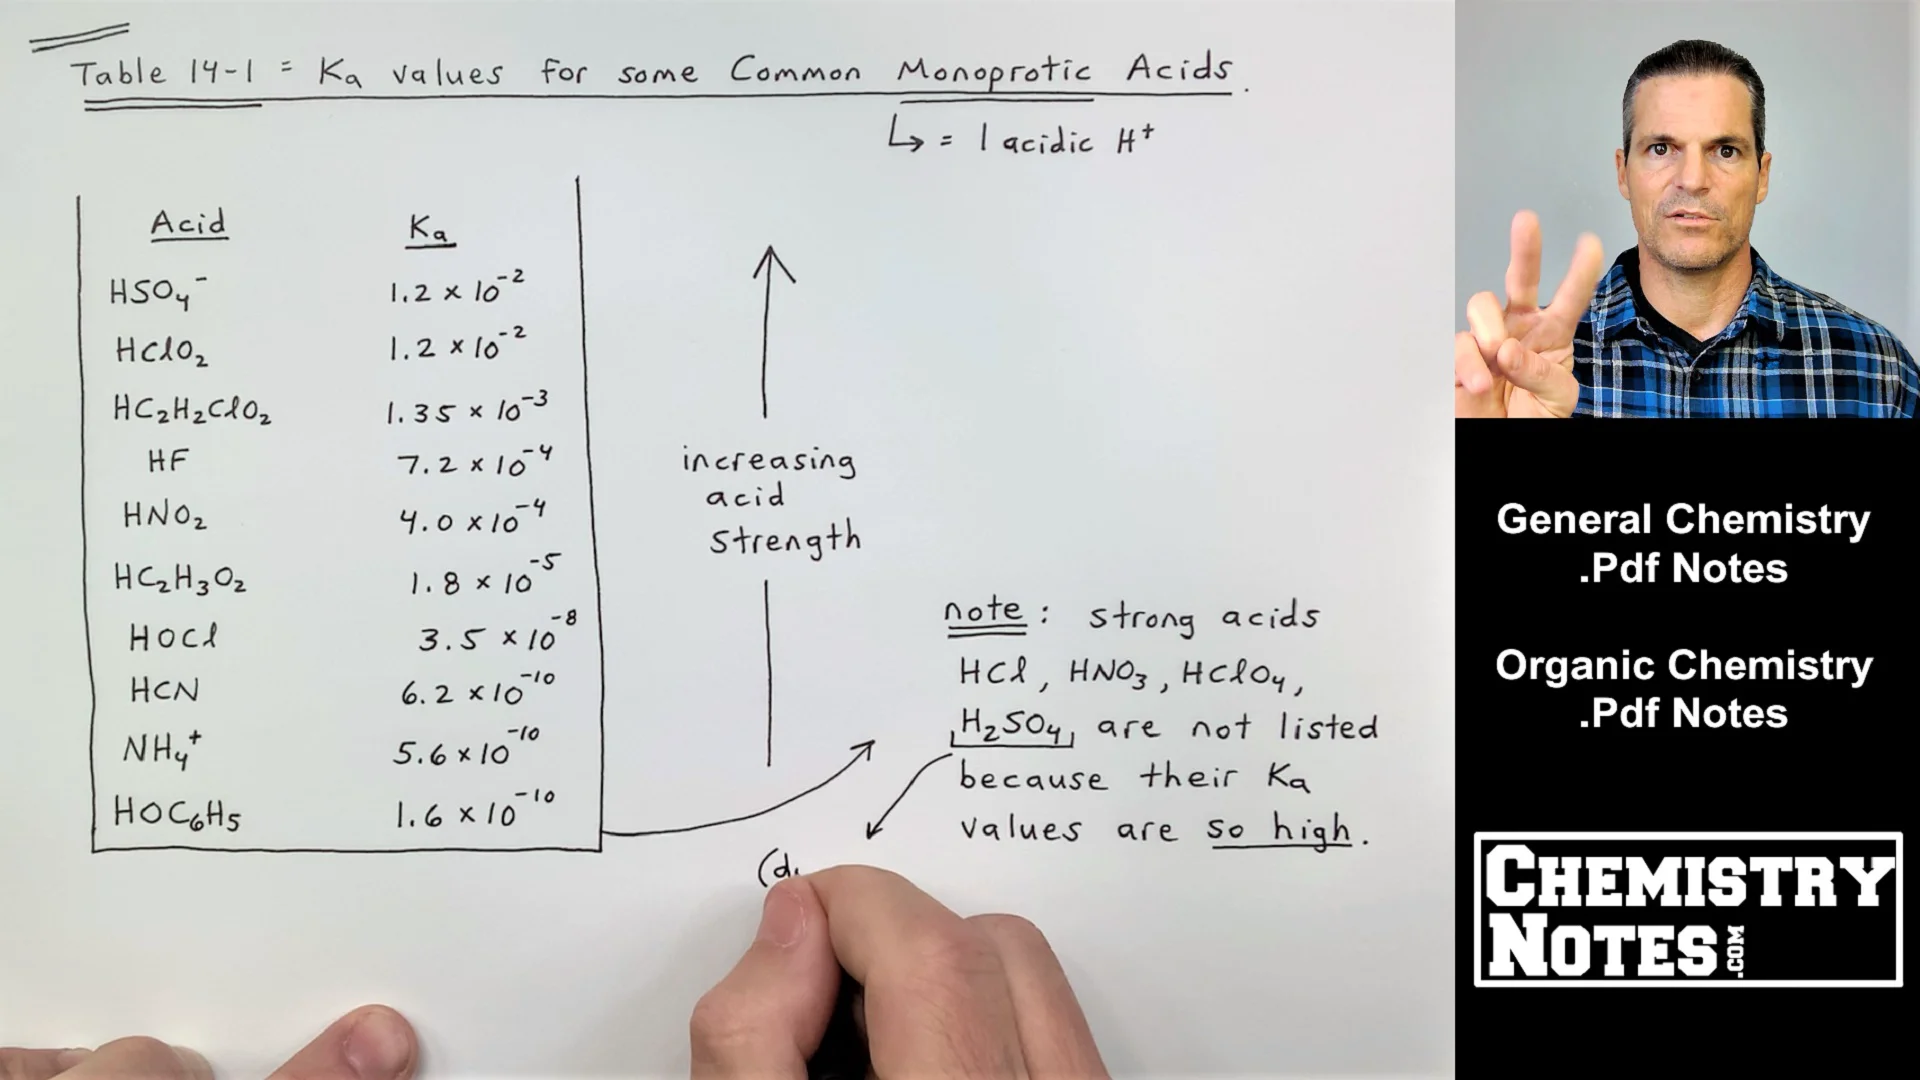 Table 14-1 = Ka values for some Common Monoprotic Acids.
↳ = 1 acidic H⁺
Acid Ka
HSO₄⁻ 1.2 × 10⁻²
HClO₂ 1.2 × 10⁻²
HC₂H₂ClO₂ 1.35 × 10⁻³
HF 7.2 × 10⁻⁴
HNO₂ 4.0 × 10⁻⁴
HC₂H₃O₂ 1.8 × 10⁻⁵
HOCl 3.5 × 10⁻⁸
HCN 6.2 × 10⁻¹⁰
NH₄⁺ 5.6 × 10⁻¹⁰
HOC₆H₅ 1.6 × 10⁻¹⁰
increasing
acid
strength
note: strong acids
HCl, HNO₃, HClO₄,
H₂SO₄ are not listed
because their Ka
values are so high.
General Chemistry
.Pdf Notes
Organic Chemistry
.Pdf Notes
CHEMISTRY
NOTES.COM